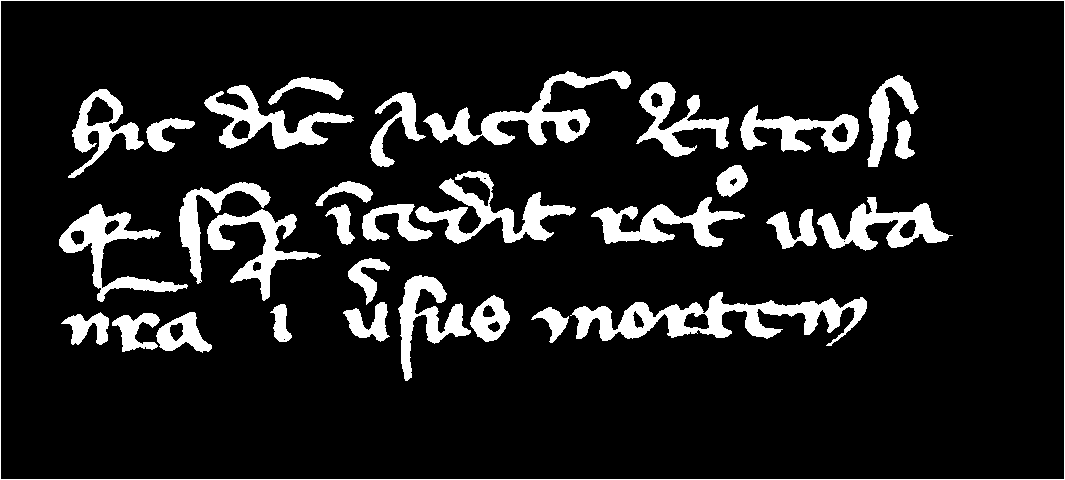 hic dic̄ Auctō Ritrosi
qr sēꝑ īcedit retº uita
nr̄a i u̓sus mortem